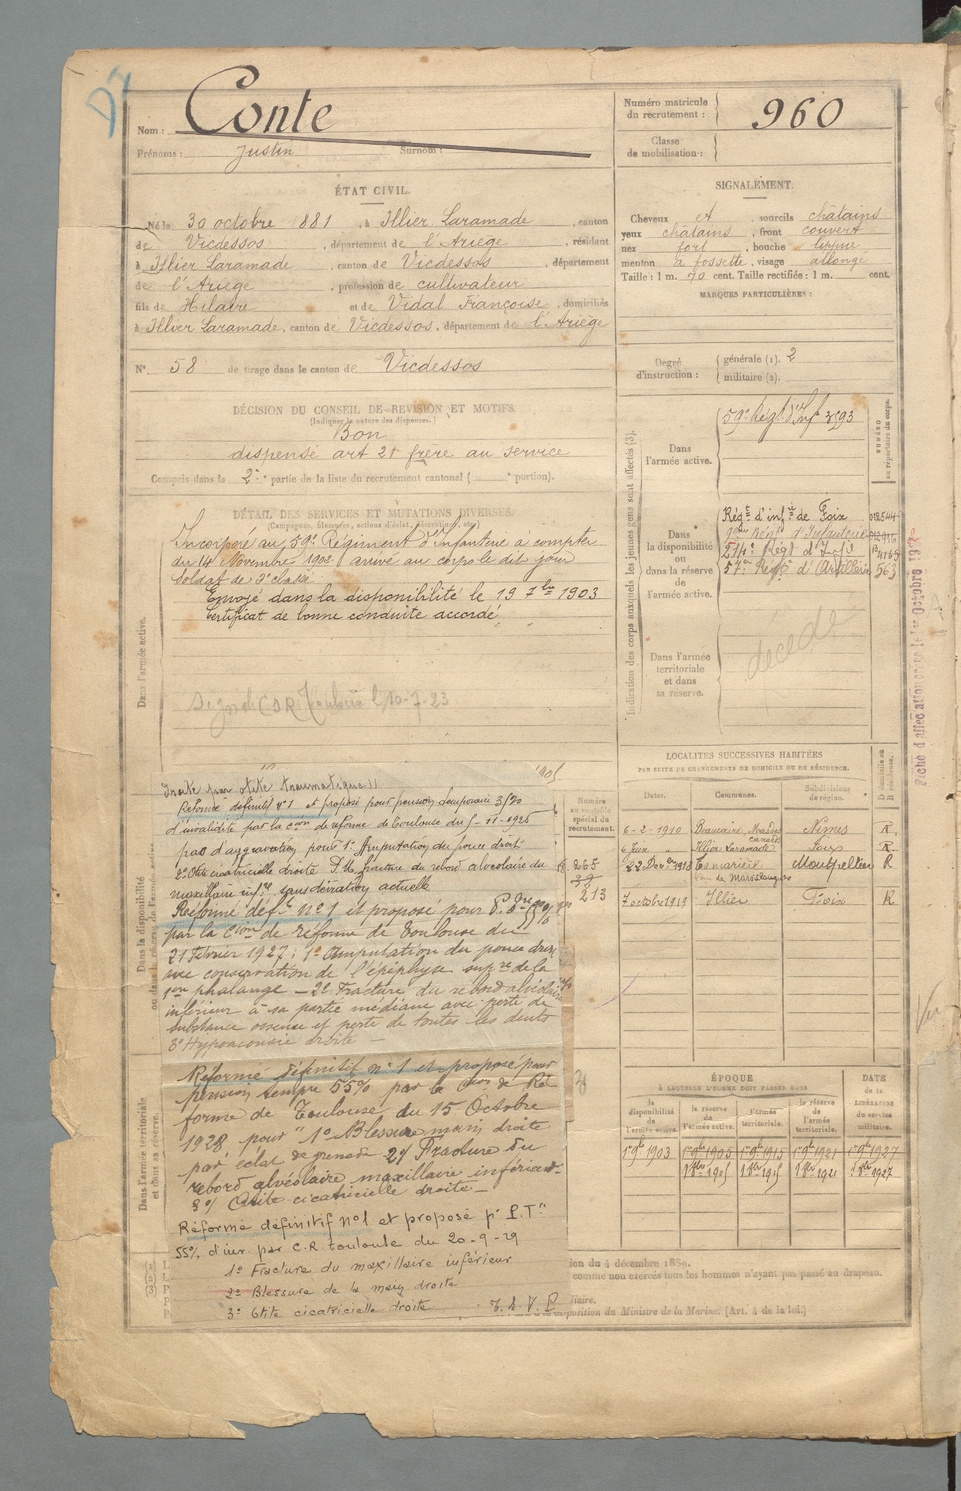 Nom : Conte
Prénoms : Justin Surnom :
Numéro matricule
du recrutement : 960
Classe
de mobilisation :
ÉTAT CIVIL.
Né le 30 octobre 1881, à Illier Laramade, canton
de Vicdessos, département de l'Ariège, résidant
à Illier Laramade, canton de Vicdessos, département
de l'Ariège, profession de cultivateur
fils de Hilaire et de Vidal Françoise, domiciliés
à Illier Laramade, canton de Vicdessos, département de l'Ariège
N° 58 de tirage dans le canton de Vicdessos
SIGNALEMENT.
Cheveux et, sourcils châtains
yeux châtains, front couvert
nez fort, bouche lippue
menton à fossette, visage allongé
Taille : 1 m. 70 cent. Taille rectifiée : 1 m. cent.
MARQUES PARTICULIÈRES :
Degré
d'instruction :
générale (1). 2
militaire (2).
DÉCISION DU CONSEIL DE REVISION ET MOTIFS.
(Indiquer la nature des dispenses.)
Bon
dispensé art 21 frère au service
Compris dans la 2e partie de la liste du recrutement cantonal ( portion).
DÉTAIL DES SERVICES ET MUTATIONS DIVERSES.
(Campagnes, blessures, actions d'éclat, décorations, etc.)
Incorporé au 59e Régiment d'Infanterie à compter
du 14 Novembre 1902 arrivé au corps le dit jour
Soldat de 2e classe
Envoyé dans la disponibilité le 19 7bre 1903
Certificat de bonne conduite accordé
10-7-23
Dans l'armée active.
Indication des corps auxquels les jeunes gens sont affectés (3).
NUMÉRO
au répertoire du corps.
Dans
l'armée active.
59e Régt d'Inf
Dans
la disponibilité
ou
dans la réserve
de
l'armée active.
Régt d'infie de Foix
Régt d'Infanterie
214e Régt d'Infie
57e Régt d'Artillerie 563
Dans l'armée
territoriale
et dans
sa réserve.
décédé
Fiche d'affectation
LOCALITÉS SUCCESSIVES HABITÉES
PAR SUITE DE CHANGEMENTS DE DOMICILE OU DE RÉSIDENCE.
Dates. Communes. Subdivisions
de région.
D domicile ou
R résidence.
6-2-1910 Beaucaire, Nîmes R.
6 Juin " Illier Laramade Foix R.
22 Dec 1913 Montpellier R
7 octobre 1919 Illier Foix R
Numéro
au contrôle
spécial du
recrutement.
265
213
droite par otite traumatique
Réformé définitif n°1 et proposé pour pension temporaire
d'invalidité par la con de réforme de Toulouse du 5-11-1925
pas d'aggravation pour 1° Amputation du pouce droit
2° Otite cicatricielle droite fracture du rebord alvéolaire du
maxillaire infr sans déviation actuelle
Réformé déf n°1 et proposé pour
par la Con de réforme de Toulouse du
21 février 1927 : 1° Amputation du pouce droit
avec conservation de l'épiphyse supre de la
1ère phalange - 2° Fracture du rebord alvéolaire
inférieur à sa partie médiane avec perte de
substance osseuse et perte de toutes les dents
3° Hypoacousie droite -
Réformé définitif n°1 et proposé pour
pension tempre 55% par la Con de Ré
forme de Toulouse du 15 Octobre
1928 pour "1° Blessure main droite
par éclat de grenade 2°/ Fracture du
rebord alvéolaire maxillaire inférieur
3°/ Otite cicatricielle droite -
Réformé définitif n°1 et proposé pr P.T.
55% d'inv. par C.R. Toulouse du 20-9-29
1° Fracture du maxillaire inférieur
2° Blessure de la main droite
3° Otite cicatricielle droite
Dans la disponibilité
Dans l'armée territoriale
et dans sa réserve.
ÉPOQUE
À LAQUELLE L'HOMME DOIT PASSER DANS
la
disponibilité
de
l'armée active.
la réserve
de
l'armée active.
l'armée
territoriale.
la réserve
de
l'armée
territoriale.
DATE
de la
LIBÉRATION
du service
militaire.
1903 1905 1915 1921 1927
1915 1921 1927
4 décembre 1889.
comme non exercés tous les hommes n'ayant pas passé au drapeau.
disposition du Ministre de la Marine. (Art. 4 de la loi.)